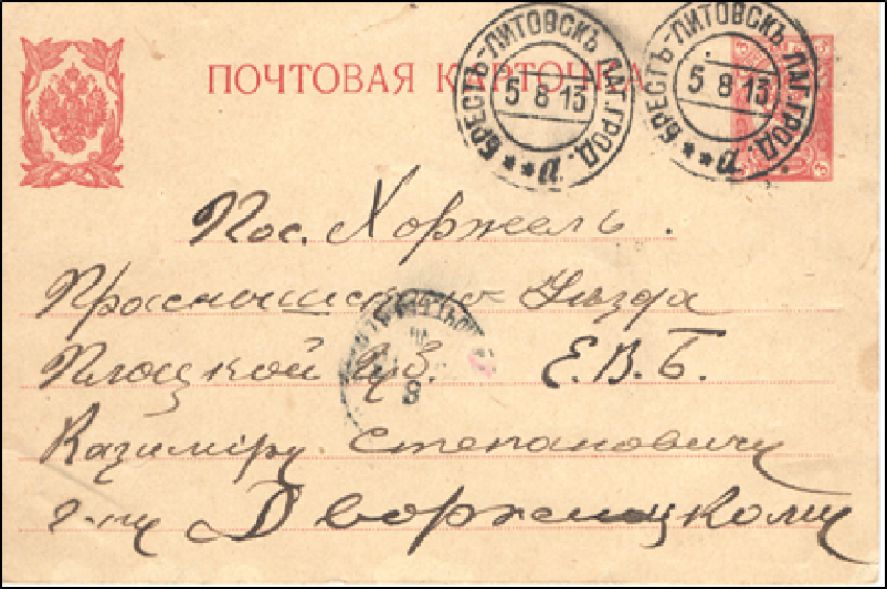 ПОЧТОВАЯ КАРТОЧКА
БРЕСТЪ-ЛИТОВСКЪ ЛАГ.ГРОД. **а
5 8 13
БРЕСТЪ-ЛИТОВСКЪ ЛАГ.ГРОД. **а
5 8 13
3 3
3
Пос. Хоржель.
Праснышскаго Уѣзда
Плоцкой Губ. Е.В.Б.
Казимiру Степановичу
г-ну Дворжецкому